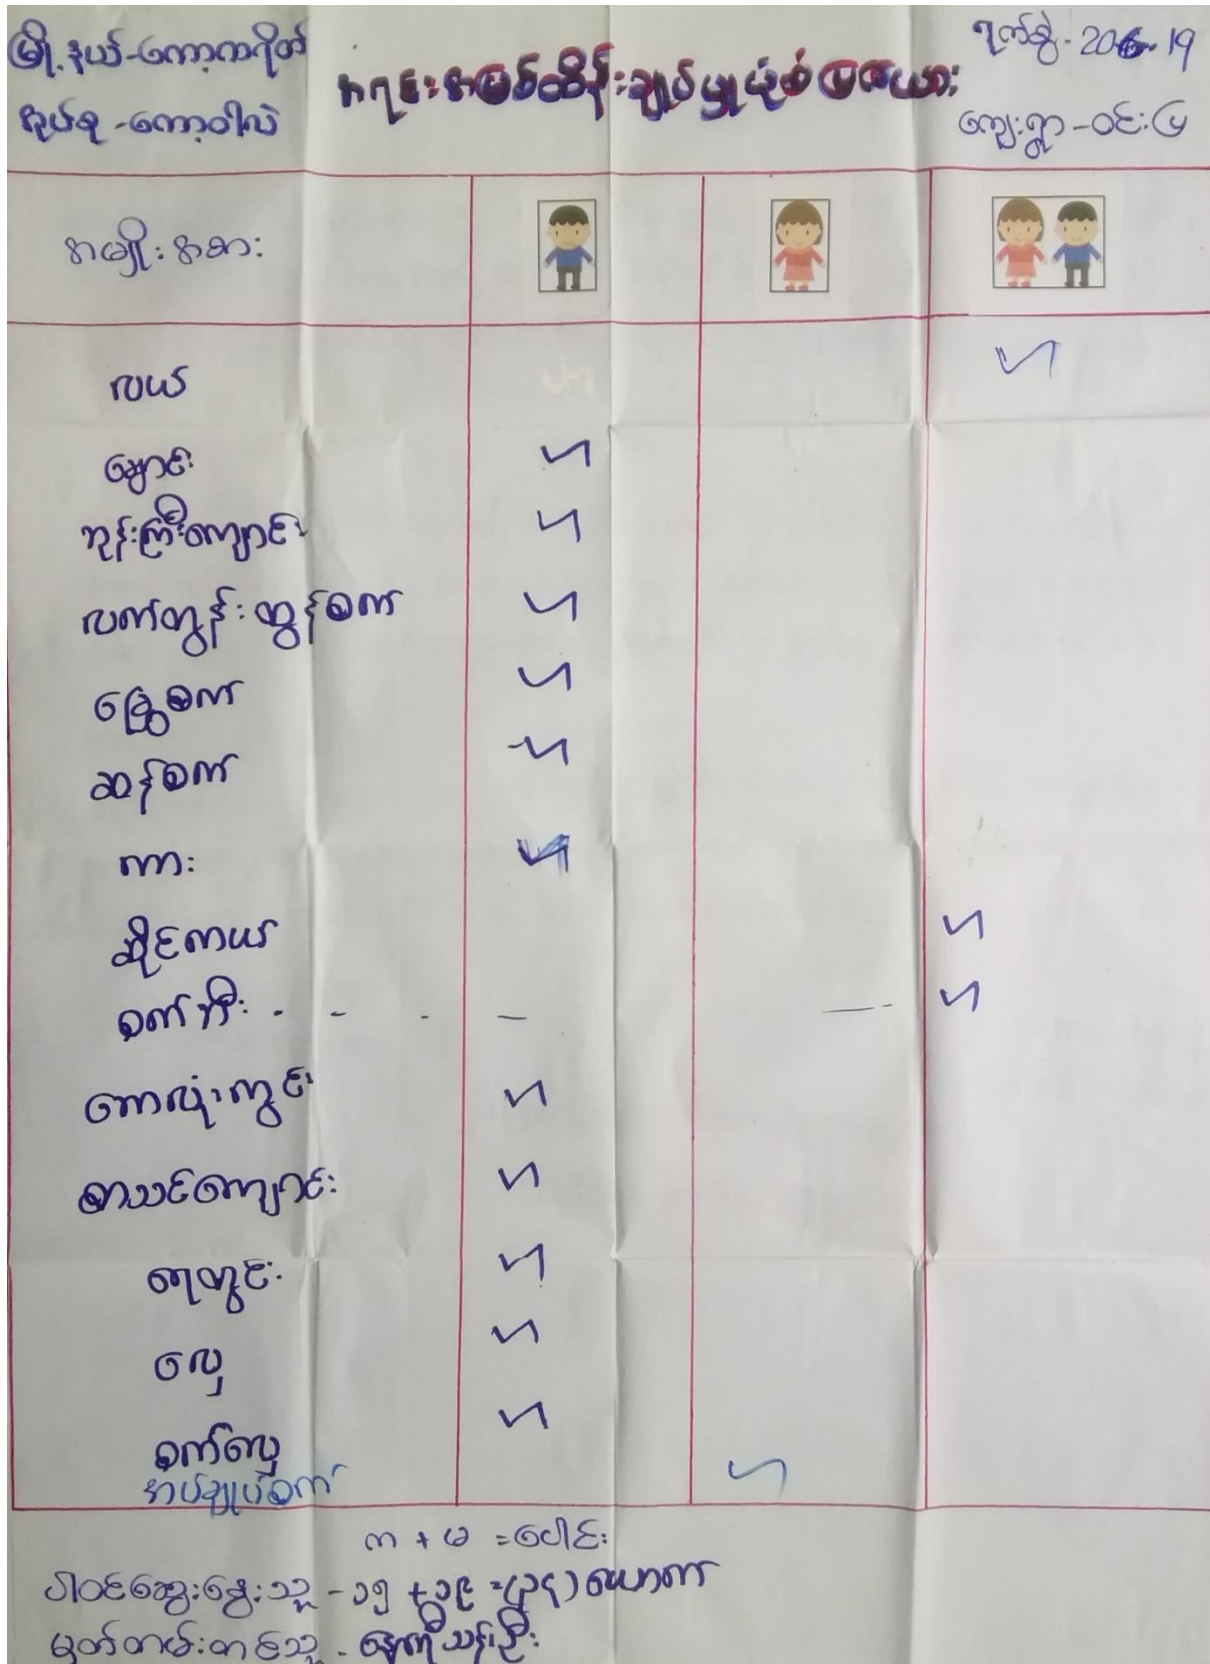 မြို့နယ်-ကော့ကရိတ်
ရက်စွဲ-20.6.19
အရင်းအမြစ်ထိန်းချုပ်မှုပုံစံပြဇယား
အုပ်စု-ကော့ဝါလဲ
ကျေးရွာ-ဝင်းပြ
အမျိုးအစား
လယ်
ချောင်း
ဘုန်းကြီးကျောင်း
လက်တွန်းထွန်စက်
ခြွေစက်
ဆန်စက်
ကား
ဆိုင်ကယ်
စက်ဘီး
ဘောလုံးကွင်း
စာသင်ကျောင်း
ရေတွင်း
လှေ
စက်လှေ
အပ်ချုပ်စက်
က + မ = ပေါင်း
ပါဝင်ဆွေးနွေးသူ - ၁၅ + ၁၉ = (၃၄) ယောက်
မှတ်တမ်းတင်သူ -